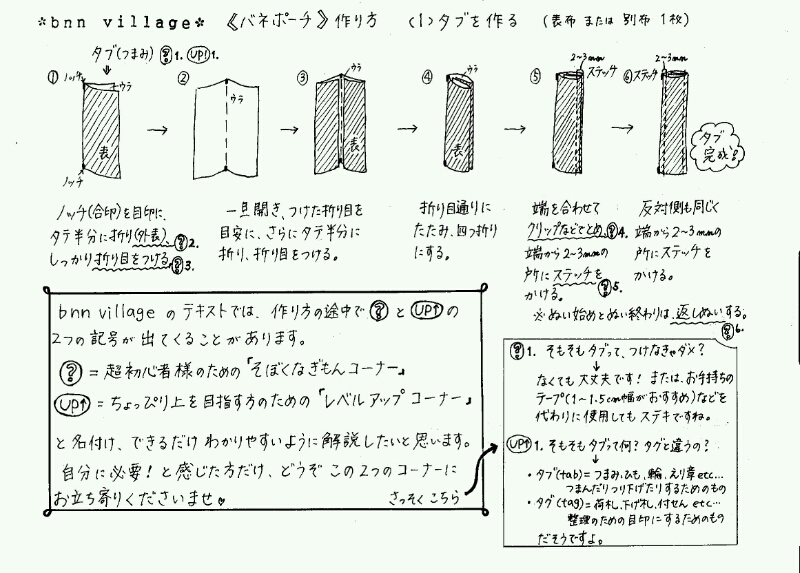 *bnn village* 《バネポーチ》作り方 (1)タブを作る (表布 または 別布 1枚)
タブ(つまみ) ? 1. UP↑ 1.
① ノッチ ウラ 表 ノッチ
② ウラ
③ ウラ 表
④ ウラ 表
⑤ 2~3mm ステッチ
⑥ 2~3mm ステッチ
タブ
完成!
ノッチ(合印)を目印に、
タテ半分に折り(外表)、? 2.
しっかり折り目をつける。? 3.
一旦開き、つけた折り目を
目安に、さらにタテ半分に
折り、折り目をつける。
折り目通りに
たたみ、四つ折り
にする。
端を合わせて
クリップなどでとめ、? 4.
端から2~3mmの
所にステッチを
かける。? 5.
反対側も同じく
端から2~3mmの
所にステッチを
かける。
※ぬい始めとぬい終わりは、返しぬいする。
? 6.
bnn village の テキストでは、作り方の途中で ? と UP↑ の
2つの記号が出てくることがあります。
? = 超初心者様のための「そぼくなぎもんコーナー」
UP↑ = ちょっぴり上を目指す方のための「レベルアップコーナー」
と名付け、できるだけ わかりやすいように解説したいと思います。
自分に必要!と感じた方だけ、どうぞ この2つのコーナーに
お立ち寄りくださいませ♥ さっそく こちら
? 1. そもそもタブって、つけなきゃダメ?
なくても大丈夫です! または、お手持ちの
テープ(1~1.5cm幅がおすすめ)などを
代わりに使用してもステキですね。
UP↑ 1. そもそもタブって何?タグと違うの?
・タブ(tab)=つまみ、ひも、輪、えり章 etc…
つまんだりつり下げたりするためのもの
・タグ(tag)=荷札、下げ札、付せん etc…
整理のための目印にするためのもの
だそうですよ。